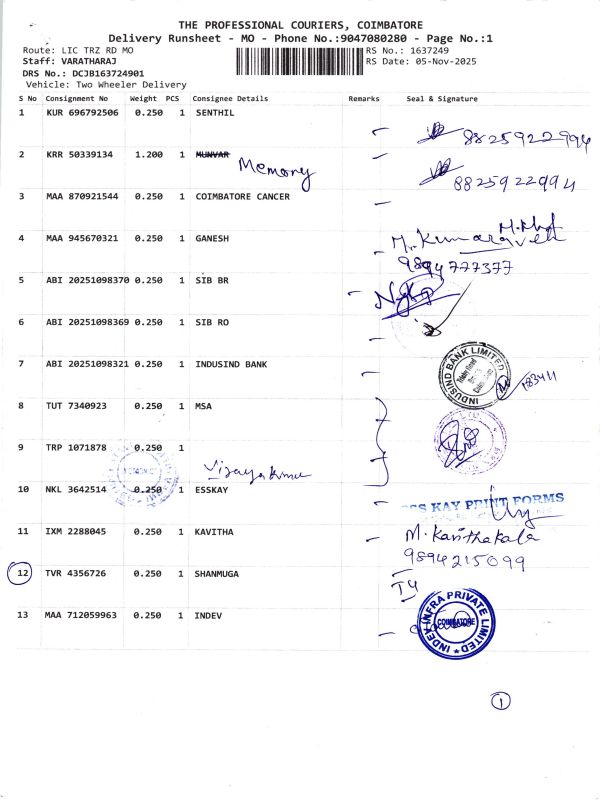 THE PROFESSIONAL COURIERS, COIMBATORE
Delivery Runsheet - MO - Phone No.:9047080280 - Page No.:1
Route: LIC TRZ RD MO RS No.: 1637249
Staff: VARATHARAJ RS Date: 05-Nov-2025
DRS No.: DCJB163724901
Vehicle: Two Wheeler Delivery
S No Consignment No Weight PCS Consignee Details Remarks Seal & Signature
1 KUR 696792506 0.250 1 SENTHIL
8825922994
2 KRR 50339134 1.200 1 MUNVAR Memory
8825922994
3 MAA 870921544 0.250 1 COIMBATORE CANCER
4 MAA 945670321 0.250 1 GANESH
9894777377
5 ABI 20251098370 0.250 1 SIB BR
6 ABI 20251098369 0.250 1 SIB RO
7 ABI 20251098321 0.250 1 INDUSIND BANK
INDUSIND BANK LIMITED
183411
8 TUT 7340923 0.250 1 MSA
9 TRP 1071878 0.250 1
Vijayakumar
10 NKL 3642514 0.250 1 ESSKAY
ESS KAY PRINT FORMS
11 IXM 2288045 0.250 1 KAVITHA
M. Kavithakala
9894215099
12 TVR 4356726 0.250 1 SHANMUGA
13 MAA 712059963 0.250 1 INDEV
INDEV INFRA PRIVATE LIMITED
COIMBATORE
1